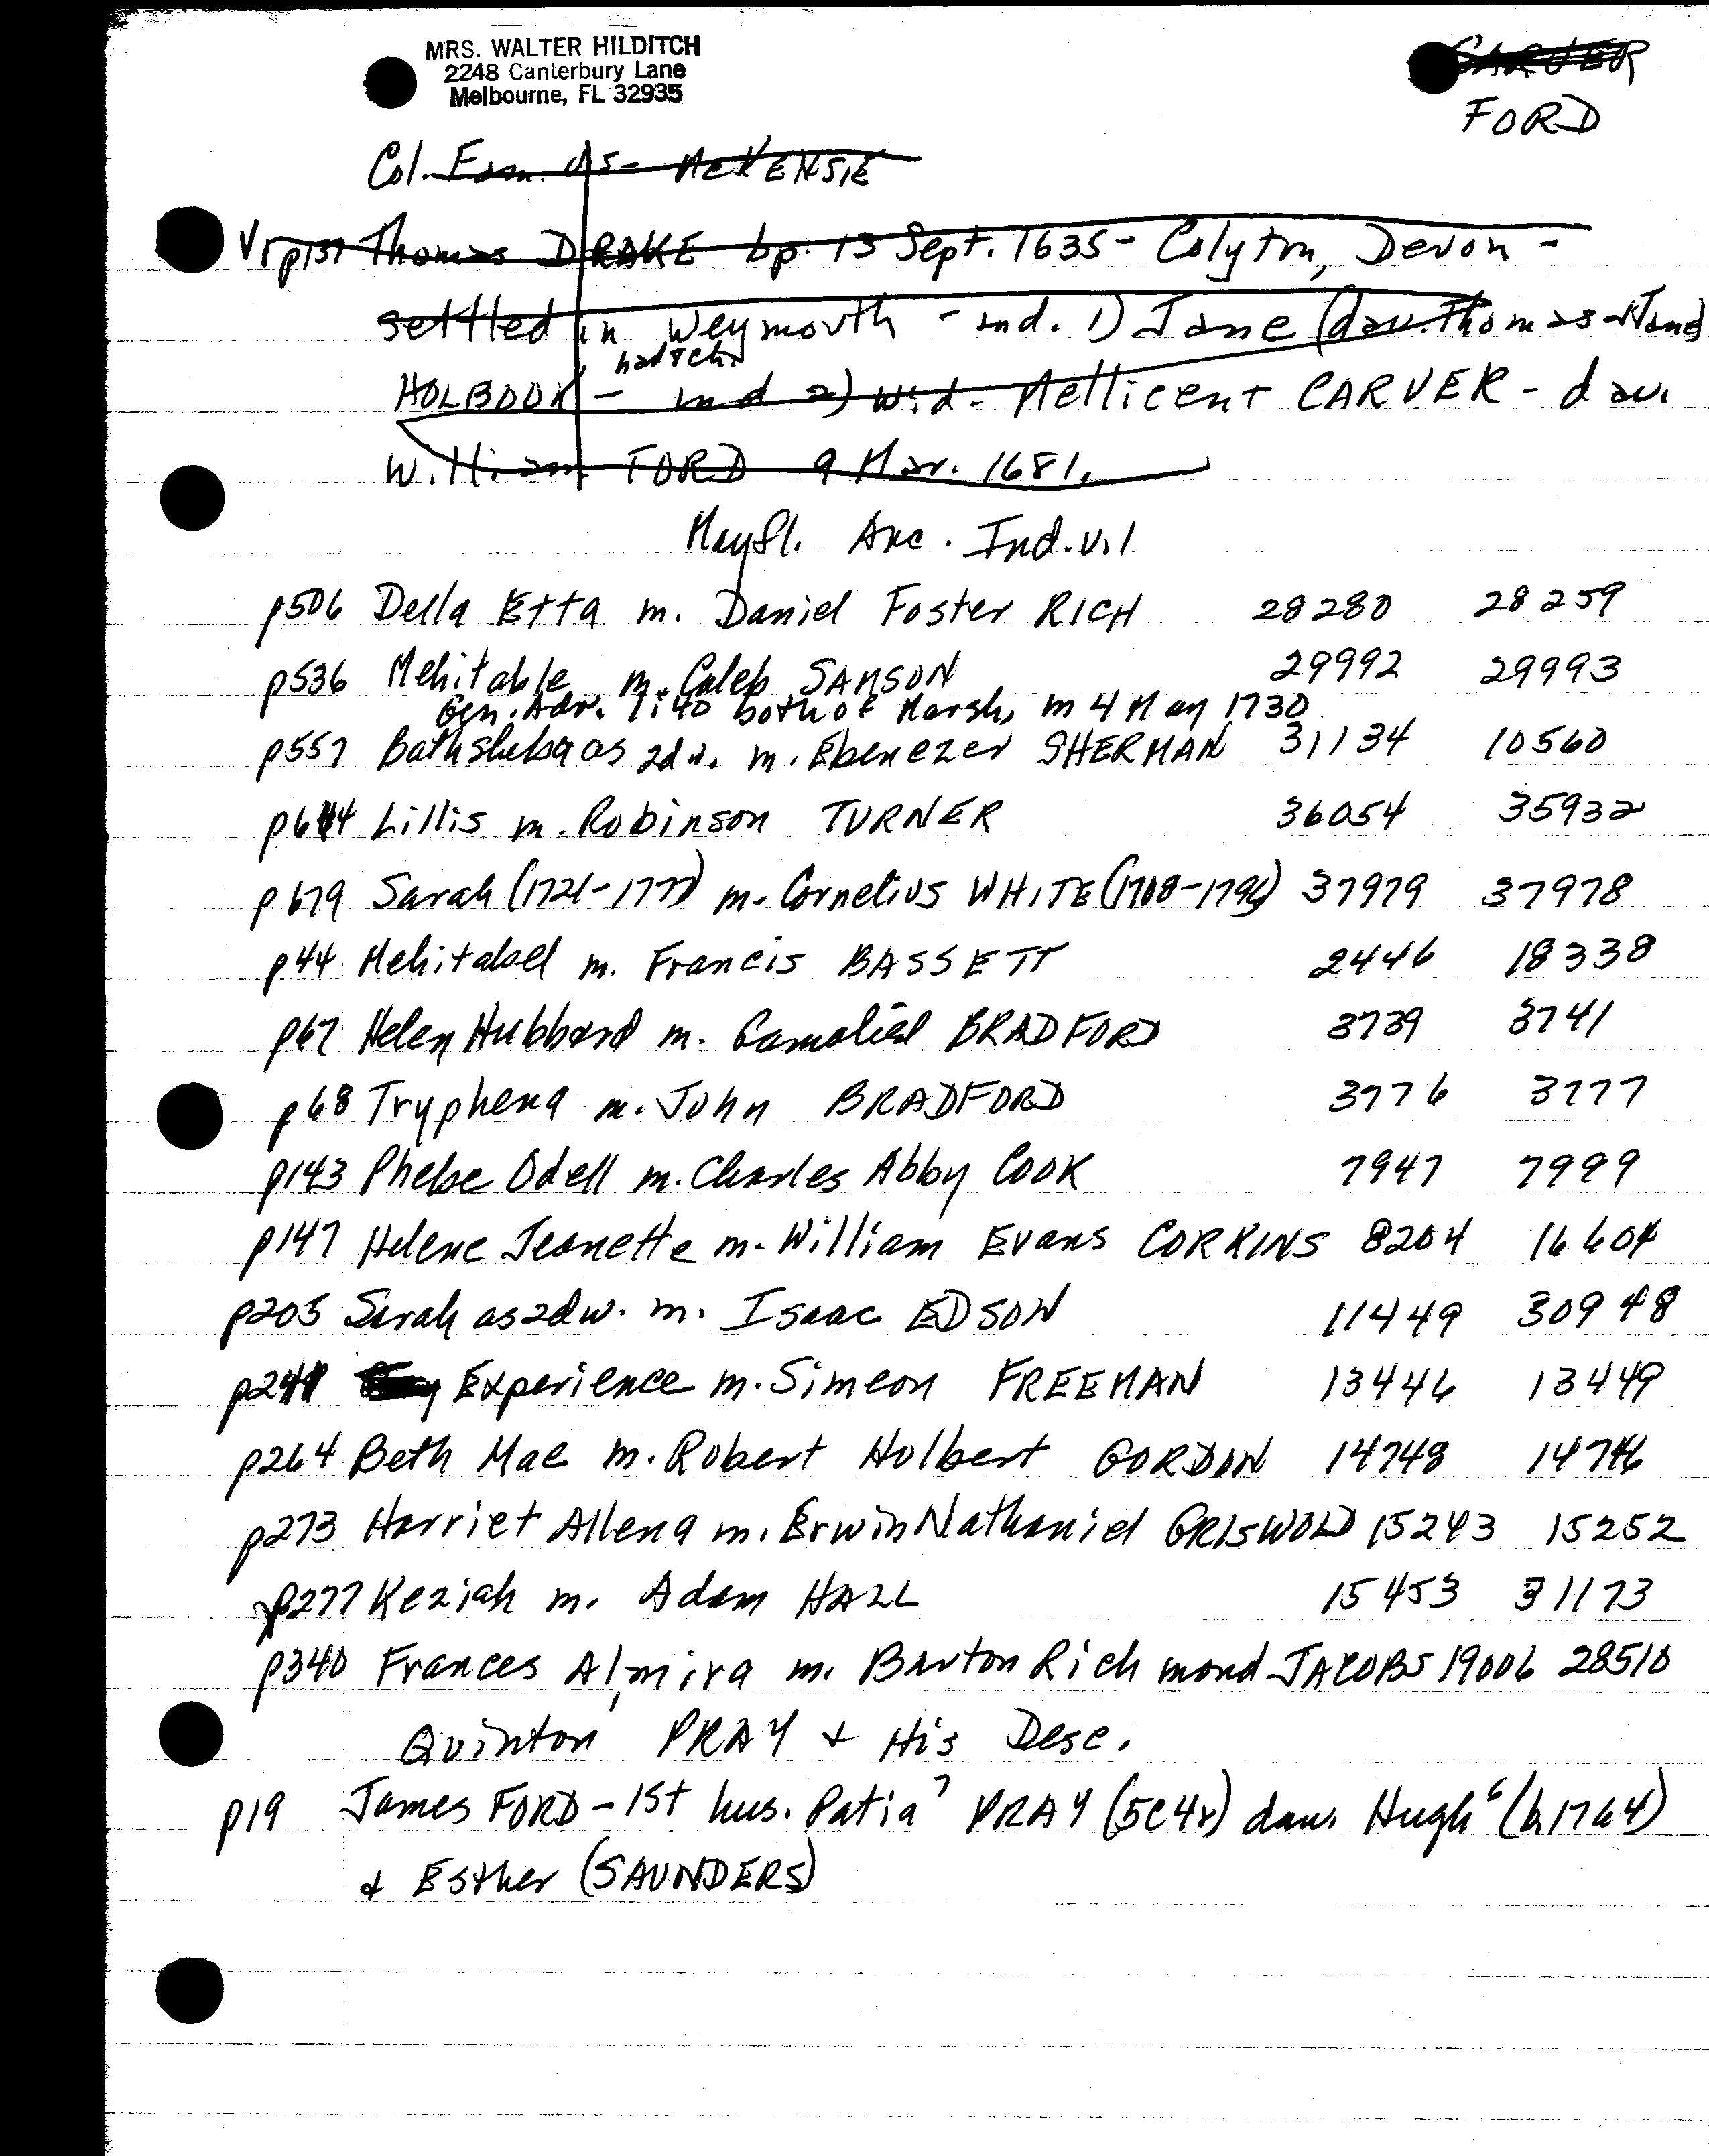 MRS. WALTER HILDITCH
2248 Canterbury Lane
Melbourne, FL 32935
CARVER
FORD
Col. Fam. US - McKENSIE
V1 p137 Thomas DRAKE bp. 13 Sept. 1635 - Colyton, Devon -
settled in Weymouth - md. 1) Jane (dau. Thomas & Jane)
had 8 ch.
HOLBOOK - md 2) wid. Mellicent CARVER - dau.
William FORD 9 Mar. 1681.
Mayfl. Anc. Ind. v.1
p506 Della Etta m. Daniel Foster RICH 28280 28259
p536 Mehitable m. Caleb SAMSON 29992 29993
Gen. Adv. 1:40 both of Marsh, m 4 May 1730
p557 Bathsheba as 2d w. m. Ebenezer SHERMAN 31134 10560
p644 Lillis m. Robinson TURNER 36054 35932
p679 Sarah (1721-1777) m. Cornelius WHITE (1708-179) 37979 37978
p44 Mehitabel m. Francis BASSETT 2446 18338
p67 Helen Hubbard m. Gamaliel BRADFORD 3739 3741
p68 Tryphena m. John BRADFORD 3776 3777
p143 Phebe Odell m. Charles Abby COOK 7947 7999
p147 Helene Jeanette m. William Evans CORKINS 8204 16604
p205 Sarah as 2d w. m. Isaac EDSON 11449 30948
p241 Experience m. Simeon FREEMAN 13446 13449
p264 Beth Mae m. Robert Holbert GORDON 14748 14746
p273 Harriet Allena m. Erwin Nathaniel GRISWOLD 15243 15252
p277 Keziah m. Adam HALL 15453 31173
p340 Frances Almira m. Barton Richmond JACOBS 19006 28510
Quinton PRAY & His Desc.
p19 James FORD - 1st hus. Patia 7 PRAY (5C4r) dau. Hugh 6 (b 1764)
& Esther (SAUNDERS)